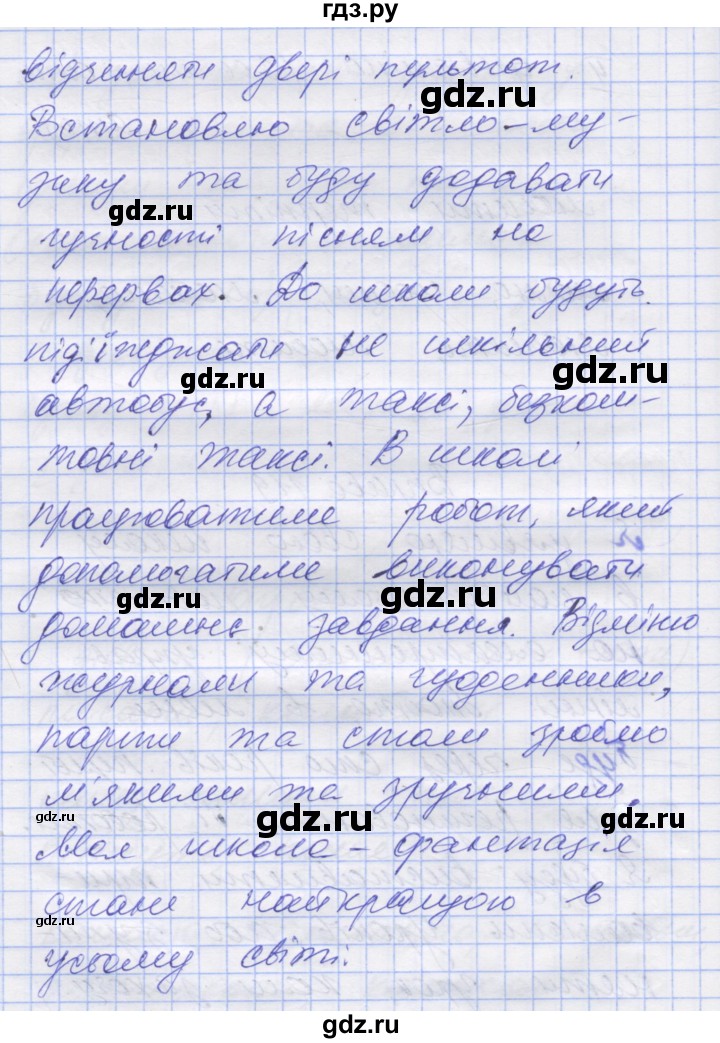 гдз.ру
відчиняти двері пультом.
gdz.ru
Встановлю світло-му-
зику та буду додавати
gdz.ru
гучності пісням на
перервах. До школи будуть
під'їжджати не шкільний
gdz.ru
gdz.ru
автобус, а таксі, безкош-
товні таксі. В школі
працюватиме робот, який
допомагатиме виконувати
gdz.ru
gdz.ru
домашнє завдання. Відміню
журнали та щоденники,
парти та столи зроблю
м'якими та зручними.
gdz.ru
gdz.ru
gdz.ru
Моя школа - фантазія
стане найкращою в
усьому світі.
gdz.ru
gdz.ru